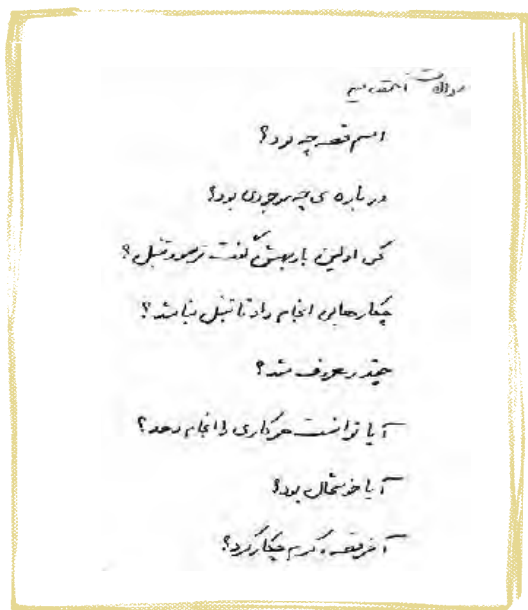 سوالات
اسم قصه چه بود؟
درباره ی چه موجودی بود؟
کی اولین بار بهش گفت کرم تنبل؟
چکارهایی انجام داد تا تنبل نباشد؟
چقدر معروف شد؟
آیا توانست هرکاری را انجام دهد؟
آیا خوشحال بود؟
آخر قصه، کرم چکار کرد؟